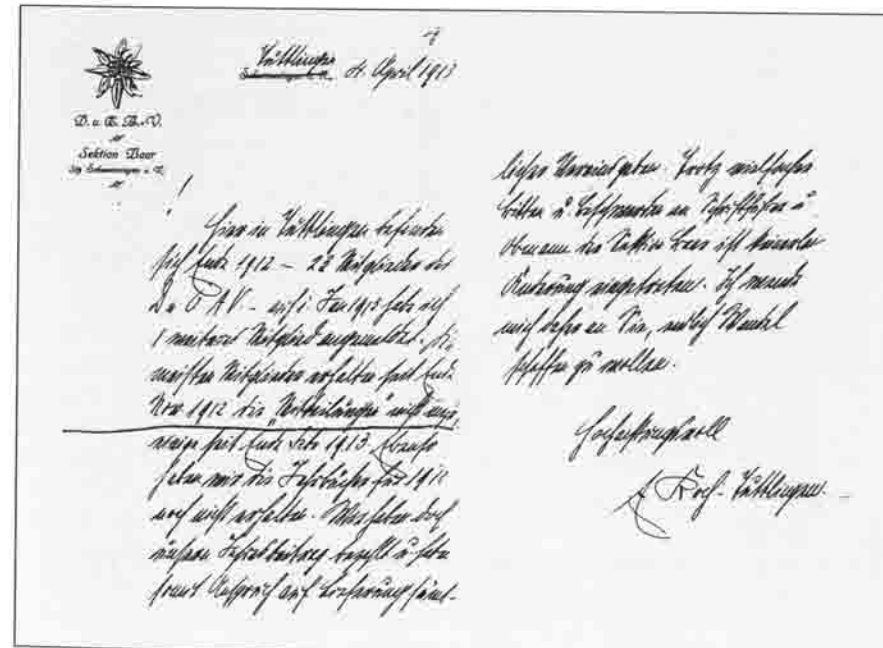 Tuttlingen 4. April 1913
D. u. Ö. A.-V.
Sektion Baar
Sitz Schwenningen a. N.
Hier in Tuttlingen befinden
sich Ende 1912 – 22 Mitglieder des
D. u. Ö A V. – auf 1. Jan 1913 habe ich
1 weiteres Mitglied angemeldet. Die
meisten Mitglieder erhalten seit Ende
Nov 1912 die "Mitteilungen" nicht mehr,
einige seit Ende Febr 1913. Ebenso
haben wir die Jahrbücher für 1912
noch nicht erhalten. Wir haben doch
unsern Jahresbeitrag bezahlt u. haben
somit Anspruch auf Lieferung sämt-
licher Vereinsgaben. Trotz vielfacher
Bitten u. Beschwerden an Schriftführer u.
Obmann der Sektion Baar ist keinerlei
Änderung eingetreten. Ich wende
mich daher an Sie, endlich Wandel
schaffen zu wollen.
Hochachtungsvoll
Koch - Tuttlingen.